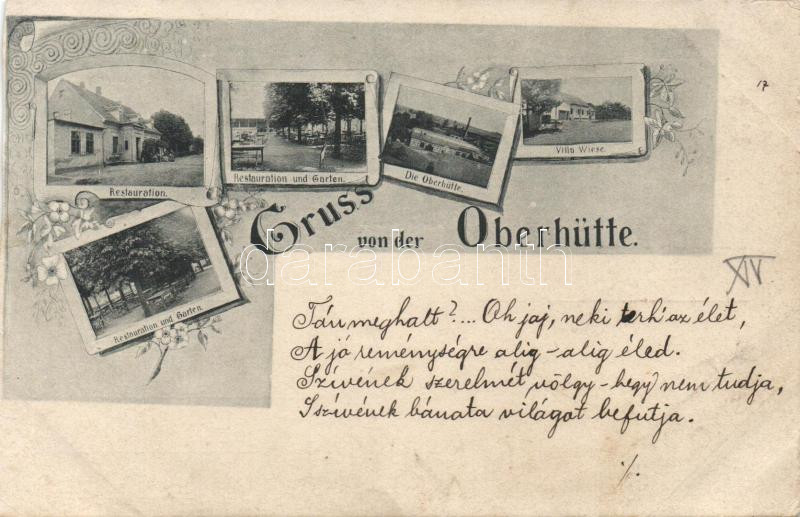 17
Restauration.
Restauration und Garten.
Die Oberhütte.
Villa Wiese.
Restauration und Garten.
Gruss
von der Oberhütte.
darabanth
XIV
Tán meghalt?... Oh jaj, neki terh az élet,
A jó reménységre alig-alig éled.
Szívének szerelmét völgy-hegy nem tudja,
S szívének bánata világot befutja.
./.